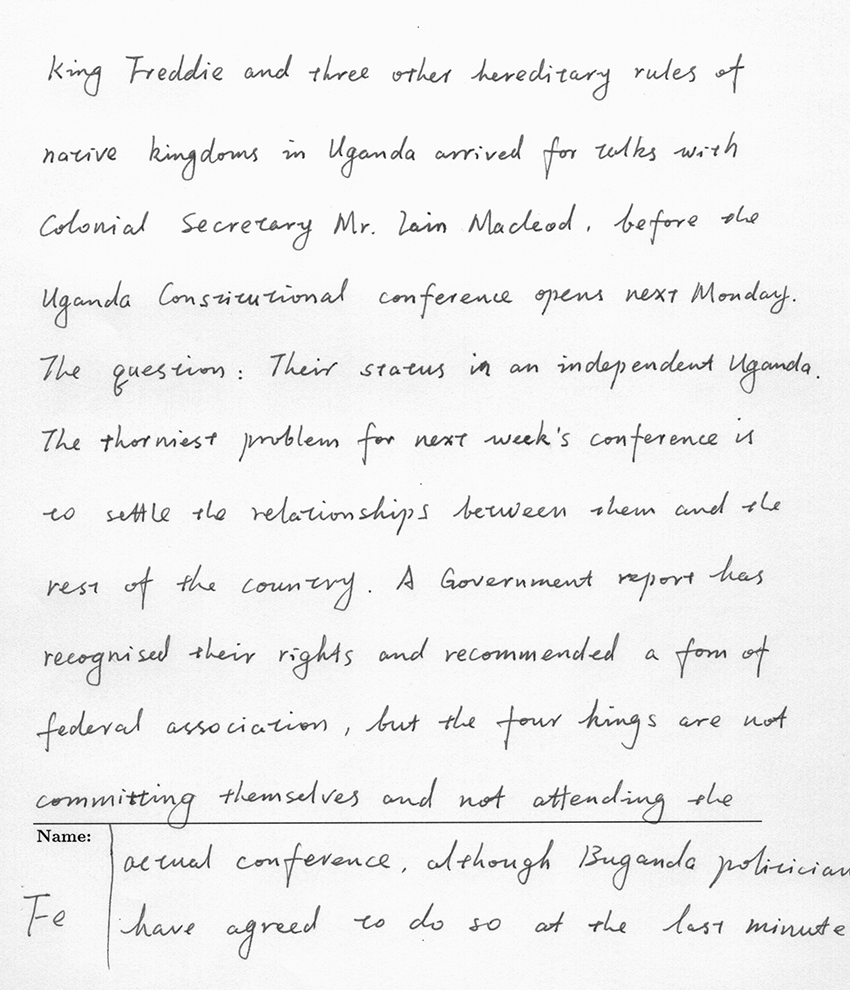 King Freddie and three other hereditary rules of
native kingdoms in Uganda arrived for talks with
Colonial Secretary Mr. Iain Macleod, before the
Uganda Constitutional conference opens next Monday.
The question: Their status in an independent Uganda.
The thorniest problem for next week's conference is
to settle the relationships between them and the
rest of the country. A Government report has
recognised their rights and recommended a fom of
federal association, but the four kings are not
committing themselves and not attending the
actual conference, although Buganda politician
have agreed to do so at the last minute
Name:
Fe